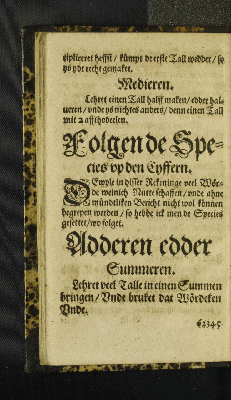 tipliceret heffst / kümpt de erste Tall wedder / so
ys ydt recht gemaket.
Medieren.
Lehret einen Tall halff maken / edder hal-
ueren / vnde ys nichtes anders / denn einen Tall
mit 2 affthodeelen.
Folgen de Spe-
cies vp den Cyffern.
DEwyle in disser Rekeninge veel Wör-
de weinich Nutte schaffen / vnde ahne
mündtliken Bericht nicht wol können
begrepen werden / so hebbe ick men de Species
gesettet / wo folget.
Adderen edder
Summeren.
Lehret veel Talle in einen Summen
bringen / Vnde bruket dat Wördeken
Vnde.